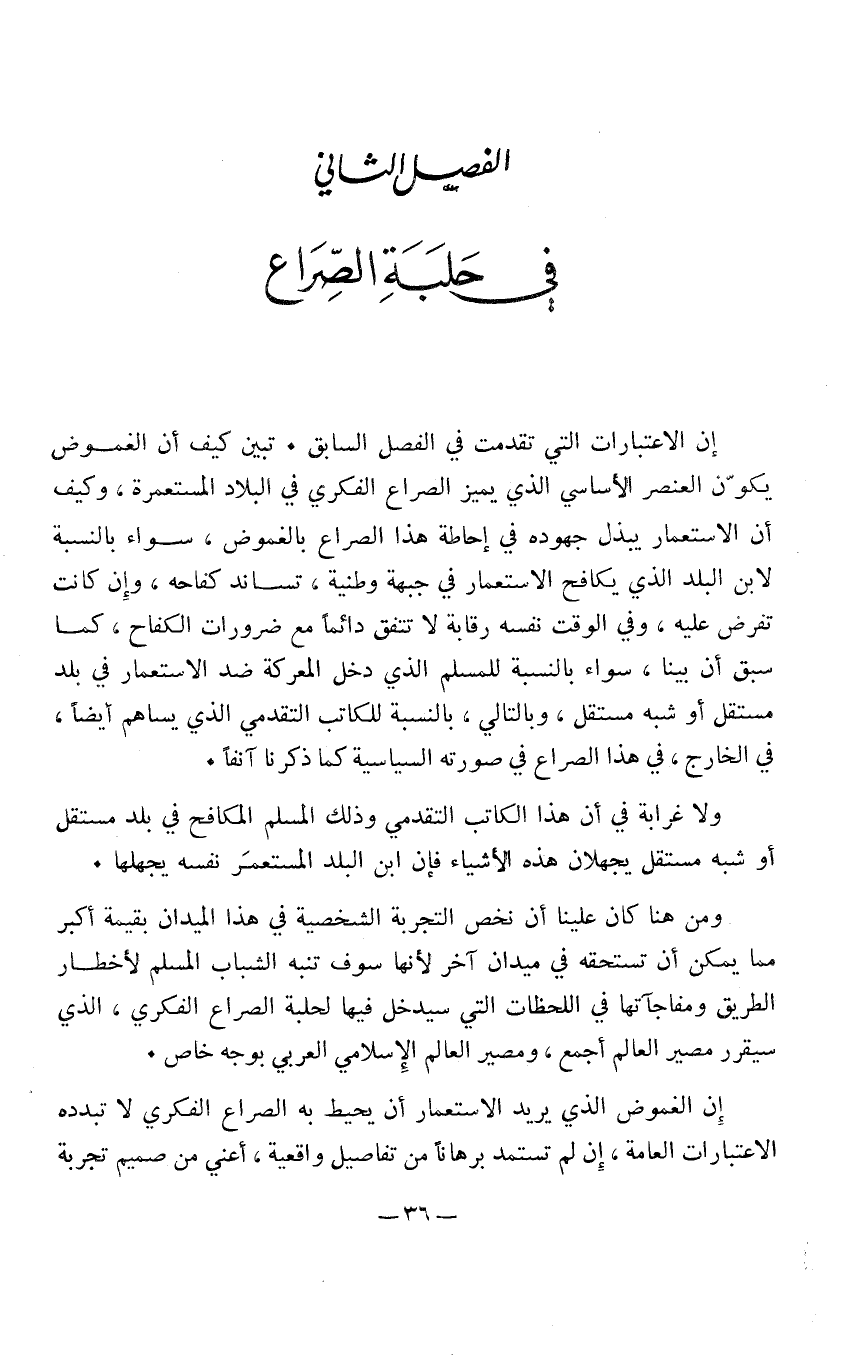 الفصل الثاني
في حَلَبَةِ الصِّرَاع
إن الاعتبارات التي تقدمت في الفصل السابق . تبين كيف أن الغمـــوض
يكوّن العنصر الأساسي الذي يميز الصراع الفكري في البلاد المستعمرة ، وكيف
أن الاستعمار يبذل جهوده في إحاطة هذا الصراع بالغموض ، ســواء بالنسبة
لابن البلد الذي يكافح الاستعمار في جبهة وطنية ، تســاند كفاحه ، وإن كانت
تفرض عليه ، وفي الوقت نفسه رقابة لا تتفق دائماً مع ضرورات الكفاح ، كمــا
سبق أن بينا ، سواء بالنسبة للمسلم الذي دخل المعركة ضد الاستعمار في بلد
مستقل أو شبه مستقل ، وبالتالي ، بالنسبة للكاتب التقدمي الذي يساهم أيضاً ،
في الخارج ، في هذا الصراع في صورته السياسية كما ذكرنا آنفاً .
ولا غرابة في أن هذا الكاتب التقدمي وذلك المسلم المكافح في بلد مستقل
أو شبه مستقل يجهلان هذه الأشياء فإن ابن البلد المستعمَر نفسه يجهلها .
ومن هنا كان علينا أن نخص التجربة الشخصية في هذا الميدان بقيمة أكبر
مما يمكن أن تستحقه في ميدان آخر لأنها سوف تنبه الشباب المسلم لأخطــار
الطريق ومفاجآتها في اللحظات التي سيدخل فيها لحلبة الصراع الفكري ، الذي
سيقرر مصير العالم أجمع ، ومصير العالم الإسلامي العربي بوجه خاص .
إن الغموض الذي يريد الاستعمار أن يحيط به الصراع الفكري لا تبدده
الاعتبارات العامة ، إن لم تستمد برهاناً من تفاصيل واقعية ، أعني من صميم تجربة
— ٣٦ —